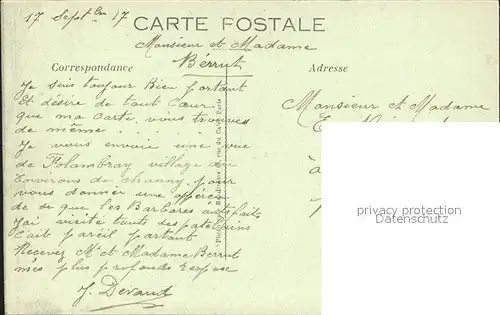 17 Septbre 17
CARTE POSTALE
Monsieur et Madame
Berrut
Correspondance
Adresse
Je suis toujour Bien portant
et désire de tout Cœur
que ma Carte vous trouves
de même . . . . . .
Je vous envoie une vue
de Folambray village au
Environs de chauny. pour
vous donner une apperçu
de ce que les Barbares ont fait
J'ai visité touts ses patelins
C'ait pareil partout
Recevez Mr et Madame Berrut
mes plus profonds respse
J. Devaud
Monsieur et Madame
à
privacy protection